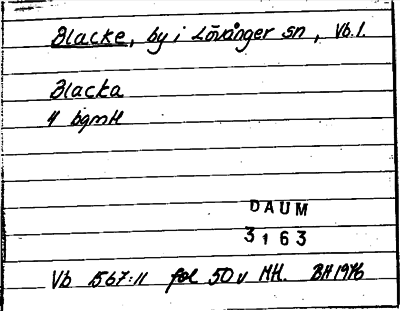 Blacke, by i Lövånger sn, Vb.l.
Blacka
4 bgmH
DAUM
3163
Vb 1567:11 fol 50v MH. BH 1976